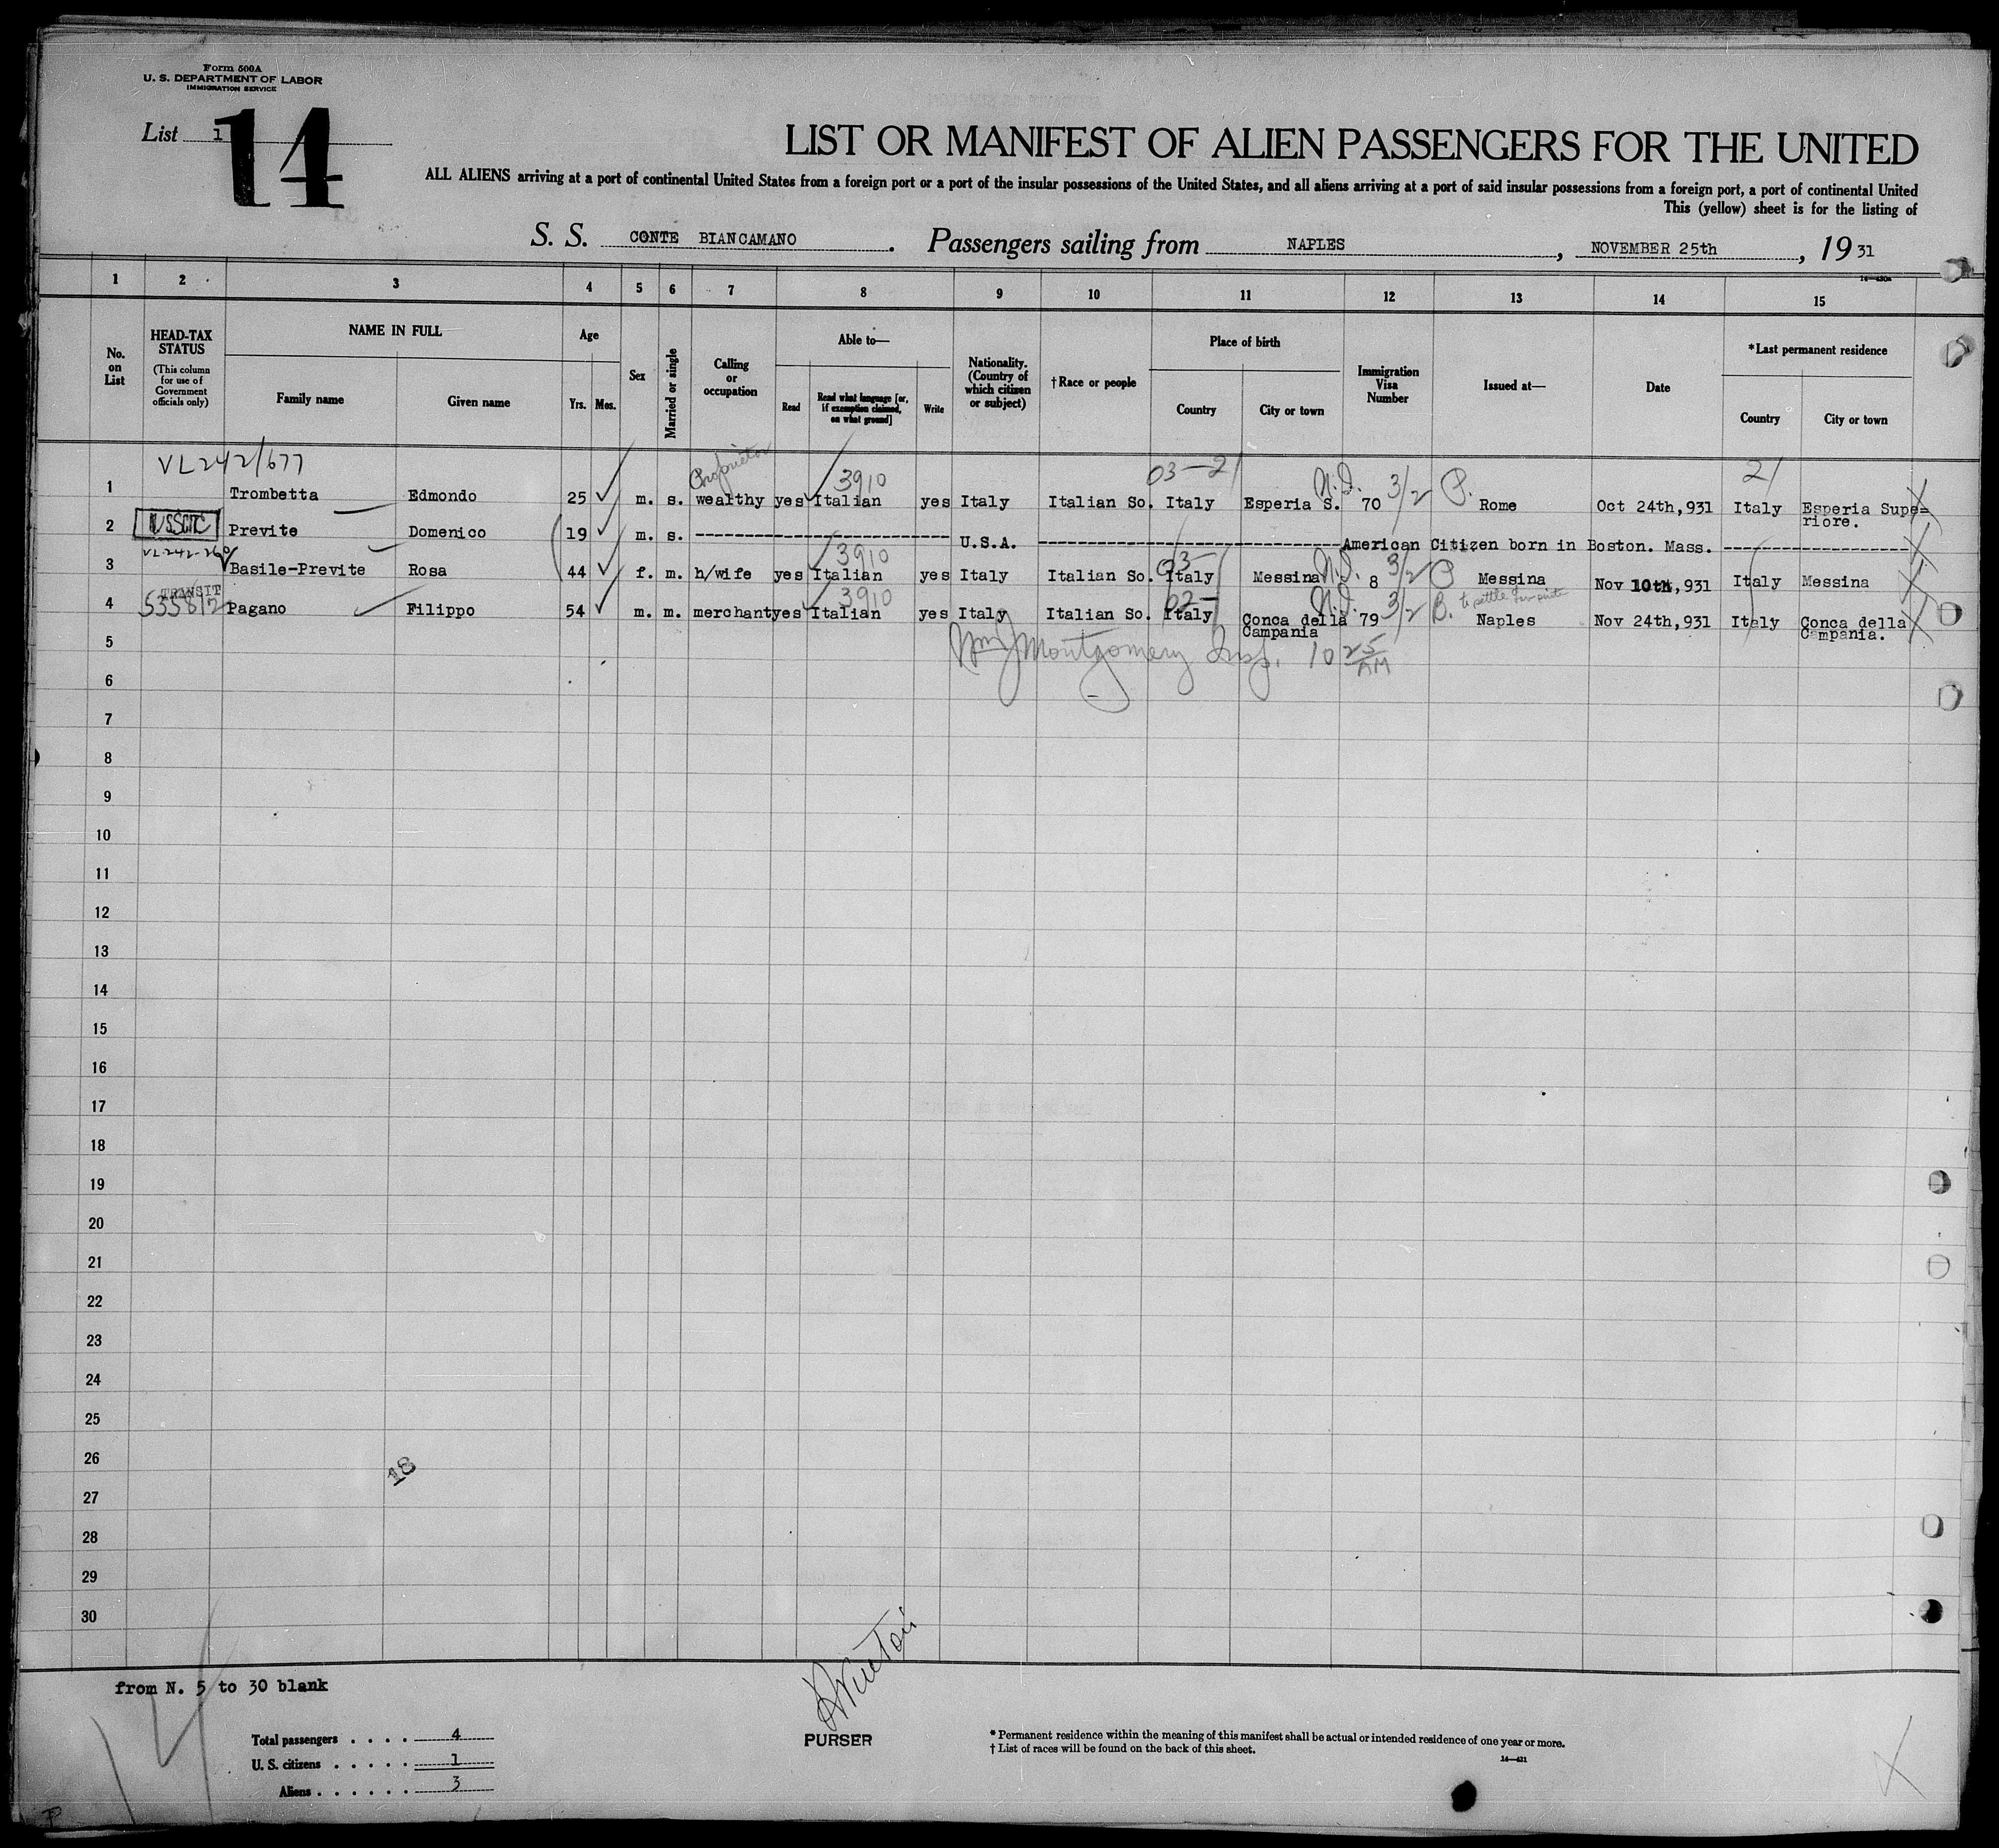 Form 500A
U. S. DEPARTMENT OF LABOR
IMMIGRATION SERVICE
List 1
14
LIST OR MANIFEST OF ALIEN PASSENGERS FOR THE UNITED
ALL ALIENS arriving at a port of continental United States from a foreign port or a port of the insular possessions of the United States, and all aliens arriving at a port of said insular possessions from a foreign port, a port of continental United
This (yellow) sheet is for the listing of
S. S. CONTE BIANCAMANO. Passengers sailing from NAPLES, NOVEMBER 25th, 1931
1 2 3 4 5 6 7 8 9 10 11 12 13 14 15
No. on List
HEAD-TAX STATUS
(This column for use of Government officials only)
NAME IN FULL
Family name Given name
Age
Yrs. Mos.
Sex
Married or single
Calling or occupation
Able to—
Read Read what language [or, if exemption claimed, on what ground] Write
Nationality. (Country of which citizen or subject)
†Race or people
Place of birth
Country City or town
Immigration Visa Number
Issued at—
Date
*Last permanent residence
Country City or town
VL242/677 Proprietor 3910 03-21 N.I. 3/2 P. 21
1 Trombetta Edmondo 25 m. s. wealthy yes Italian yes Italy Italian So. Italy Esperia S. 70 Rome Oct 24th,931 Italy Esperia Supe=
riore.
2 USCIT Previte Domenico 19 m. s. U.S.A. American Citizen born in Boston. Mass.
3910 03- N.I. 3/2 P
3 Basile-Previte Rosa 44 f. m. h/wife yes Italian yes Italy Italian So. Italy Messina 8 Messina Nov 10th,931 Italy Messina
TRANSIT 3910 02- N.I. 3/2 B. to settle
4 535812 Pagano Filippo 54 m. m. merchant yes Italian yes Italy Italian So. Italy Conca della 79 Naples Nov 24th,931 Italy Conca della
Campania Campania.
5 Montgomery Insp. 10 25 AM
6
7
8
9
10
11
12
13
14
15
16
17
18
19
20
21
22
23
24
25
26
18
27
28
29
30
from N. 5 to 30 blank
14
Total passengers . . . . 4
U. S. citizens . . . . . 1
Aliens . . . . . . 3
PURSER
* Permanent residence within the meaning of this manifest shall be actual or intended residence of one year or more.
† List of races will be found on the back of this sheet.
14—431